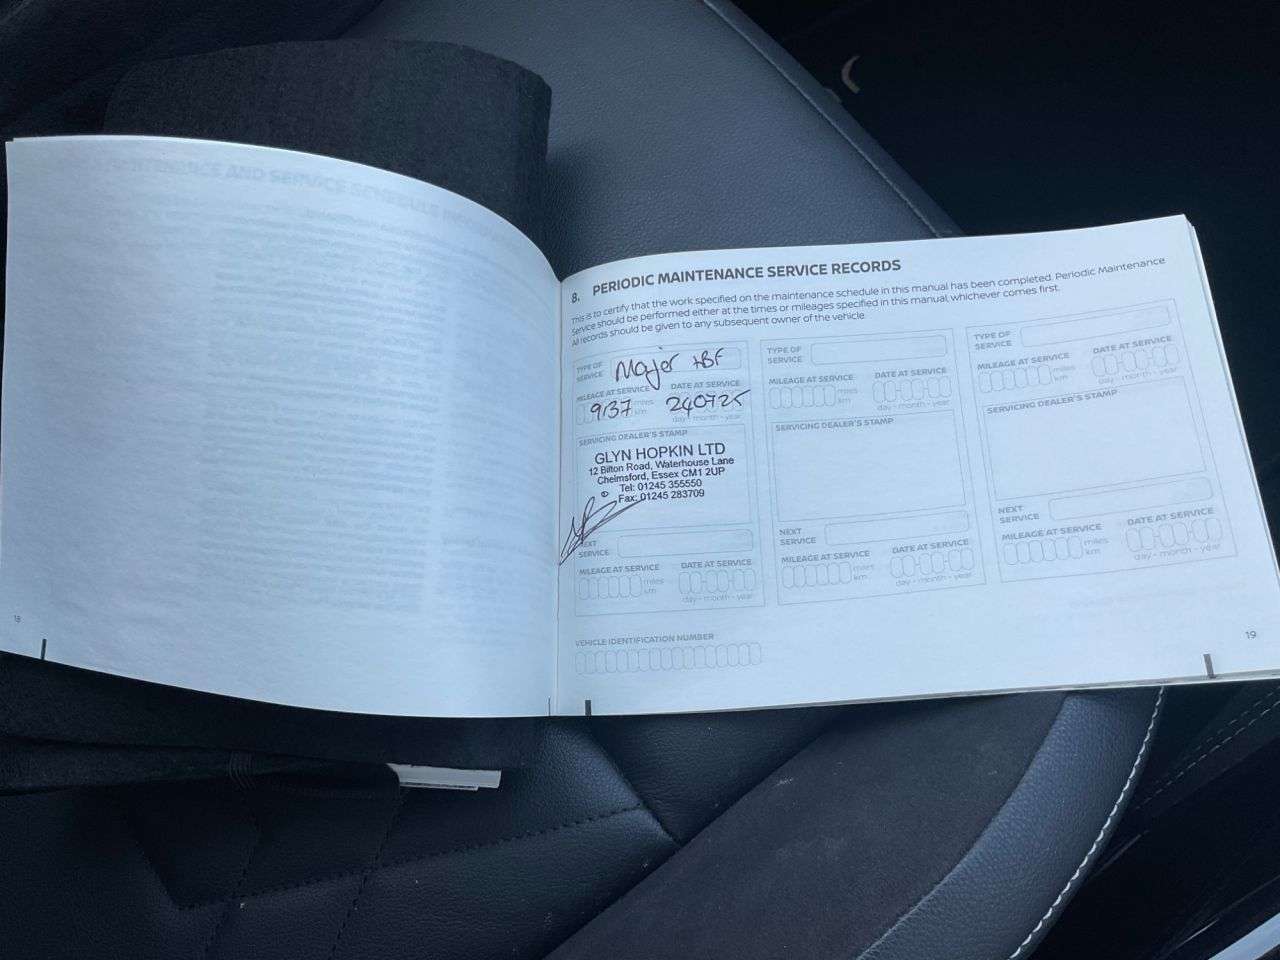 8. PERIODIC MAINTENANCE SERVICE RECORDS
This is to certify that the work specified on the maintenance schedule in this manual has been completed. Periodic Maintenance
Service should be performed either at the times or mileages specified in this manual, whichever comes first.
All records should be given to any subsequent owner of the vehicle.
TYPE OF SERVICE Major +BF
MILEAGE AT SERVICE DATE AT SERVICE
9137 miles km 240725
day - month - year
SERVICING DEALER'S STAMP
GLYN HOPKIN LTD
12 Bilton Road, Waterhouse Lane
Chelmsford, Essex CM1 2UP
Tel: 01245 355550
Fax: 01245 283709
NEXT SERVICE
MILEAGE AT SERVICE DATE AT SERVICE
miles km
day - month - year
TYPE OF SERVICE
MILEAGE AT SERVICE DATE AT SERVICE
miles km
day - month - year
SERVICING DEALER'S STAMP
NEXT SERVICE
MILEAGE AT SERVICE DATE AT SERVICE
miles km
day - month - year
TYPE OF SERVICE
MILEAGE AT SERVICE DATE AT SERVICE
miles km
day - month - year
SERVICING DEALER'S STAMP
NEXT SERVICE
MILEAGE AT SERVICE DATE AT SERVICE
miles km
day - month - year
VEHICLE IDENTIFICATION NUMBER
18
19